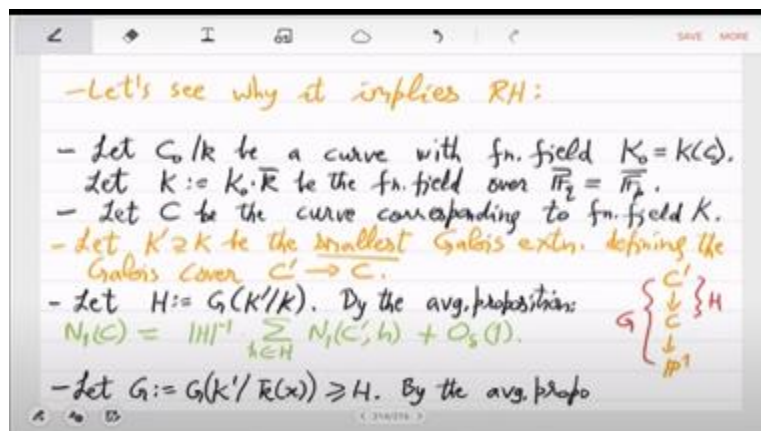 SAVE MORE
-Let's see why it implies RH:
- Let C₀/k be a curve with fn. field K₀ = k(C₀).
Let K := K₀·k̅ be the fn. field over F̅_q = F̅_p.
- Let C be the curve corresponding to fn. field K.
- Let K' ⊇ K be the smallest Galois extn. defining the
Galois cover C' → C.
- Let H := G(K'/K). By the avg. proposition:
N₁(C) = |H|⁻¹ Σ_{h∈H} N₁(C',h) + O_s(1).
G { C' ↓ C ↓ P¹ } H
- Let G := G(K'/k̅(x)) ≥ H. By the avg. propo